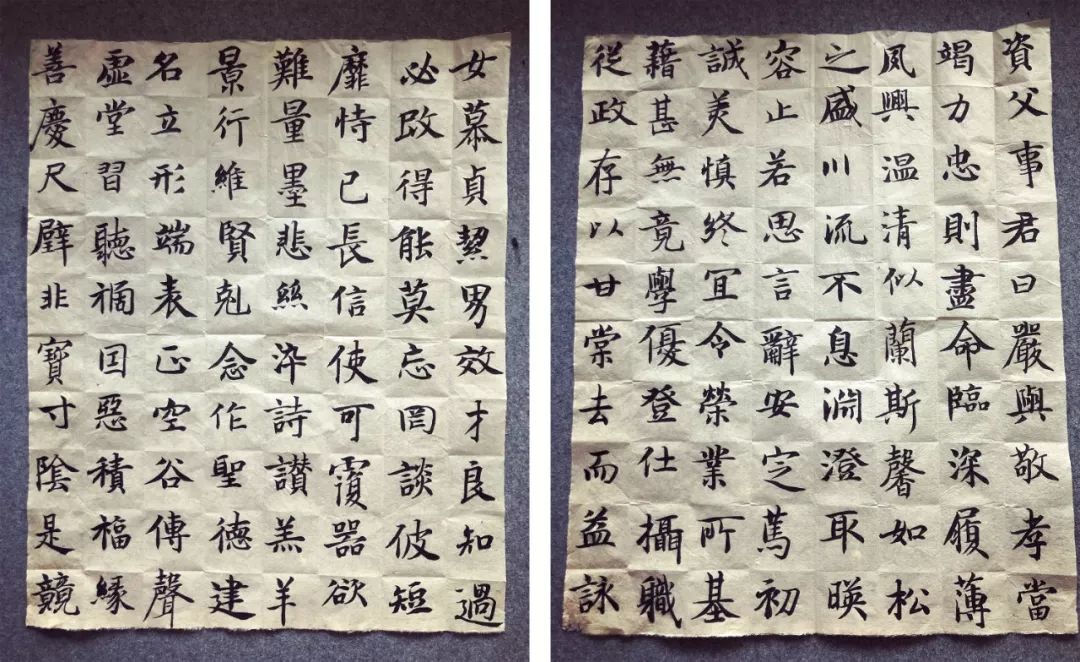 女慕貞絜男效才良知過
必改得能莫忘罔談彼短
靡恃己長信使可覆器欲
難量墨悲絲染詩讚羔羊
景行維賢剋念作聖德建
名立形端表正空谷傳聲
虛堂習聽禍因惡積福緣
善慶尺璧非寶寸陰是競
資父事君曰嚴與敬孝當
竭力忠則盡命臨深履薄
夙興温清似蘭斯馨如松
之盛川流不息淵澄取暎
容止若思言辭安定篤初
誠美慎終宜令榮業所基
藉甚無竟學優登仕攝職
從政存以甘棠去而益詠